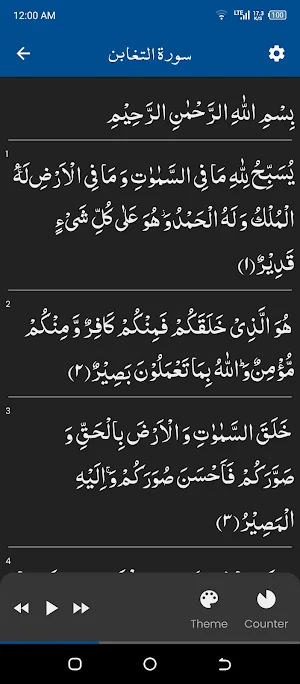 12:00 AM LTE 17.3 K/S 100
سورة التغابن
بِسْمِ اللّٰهِ الرَّحْمٰنِ الرَّحِیْمِ
1
یُسَبِّحُ لِلّٰهِ مَا فِی السَّمٰوٰتِ وَ مَا فِی الْاَرْضِۚ لَهُ
الْمُلْكُ وَ لَهُ الْحَمْدُ٘ وَ هُوَ عَلٰى كُلِّ شَیْءٍ
قَدِیْرٌ(۱)
2
هُوَ الَّذِیْ خَلَقَكُمْ فَمِنْكُمْ كَافِرٌ وَّ مِنْكُمْ
مُّؤْمِنٌؕ وَ اللّٰهُ بِمَا تَعْمَلُوْنَ بَصِیْرٌ(۲)
3
خَلَقَ السَّمٰوٰتِ وَ الْاَرْضَ بِالْحَقِّ وَ
صَوَّرَكُمْ فَاَحْسَنَ صُوَرَكُمْۚ وَ اِلَیْهِ
الْمَصِیْرُ(۳)
4
Theme Counter